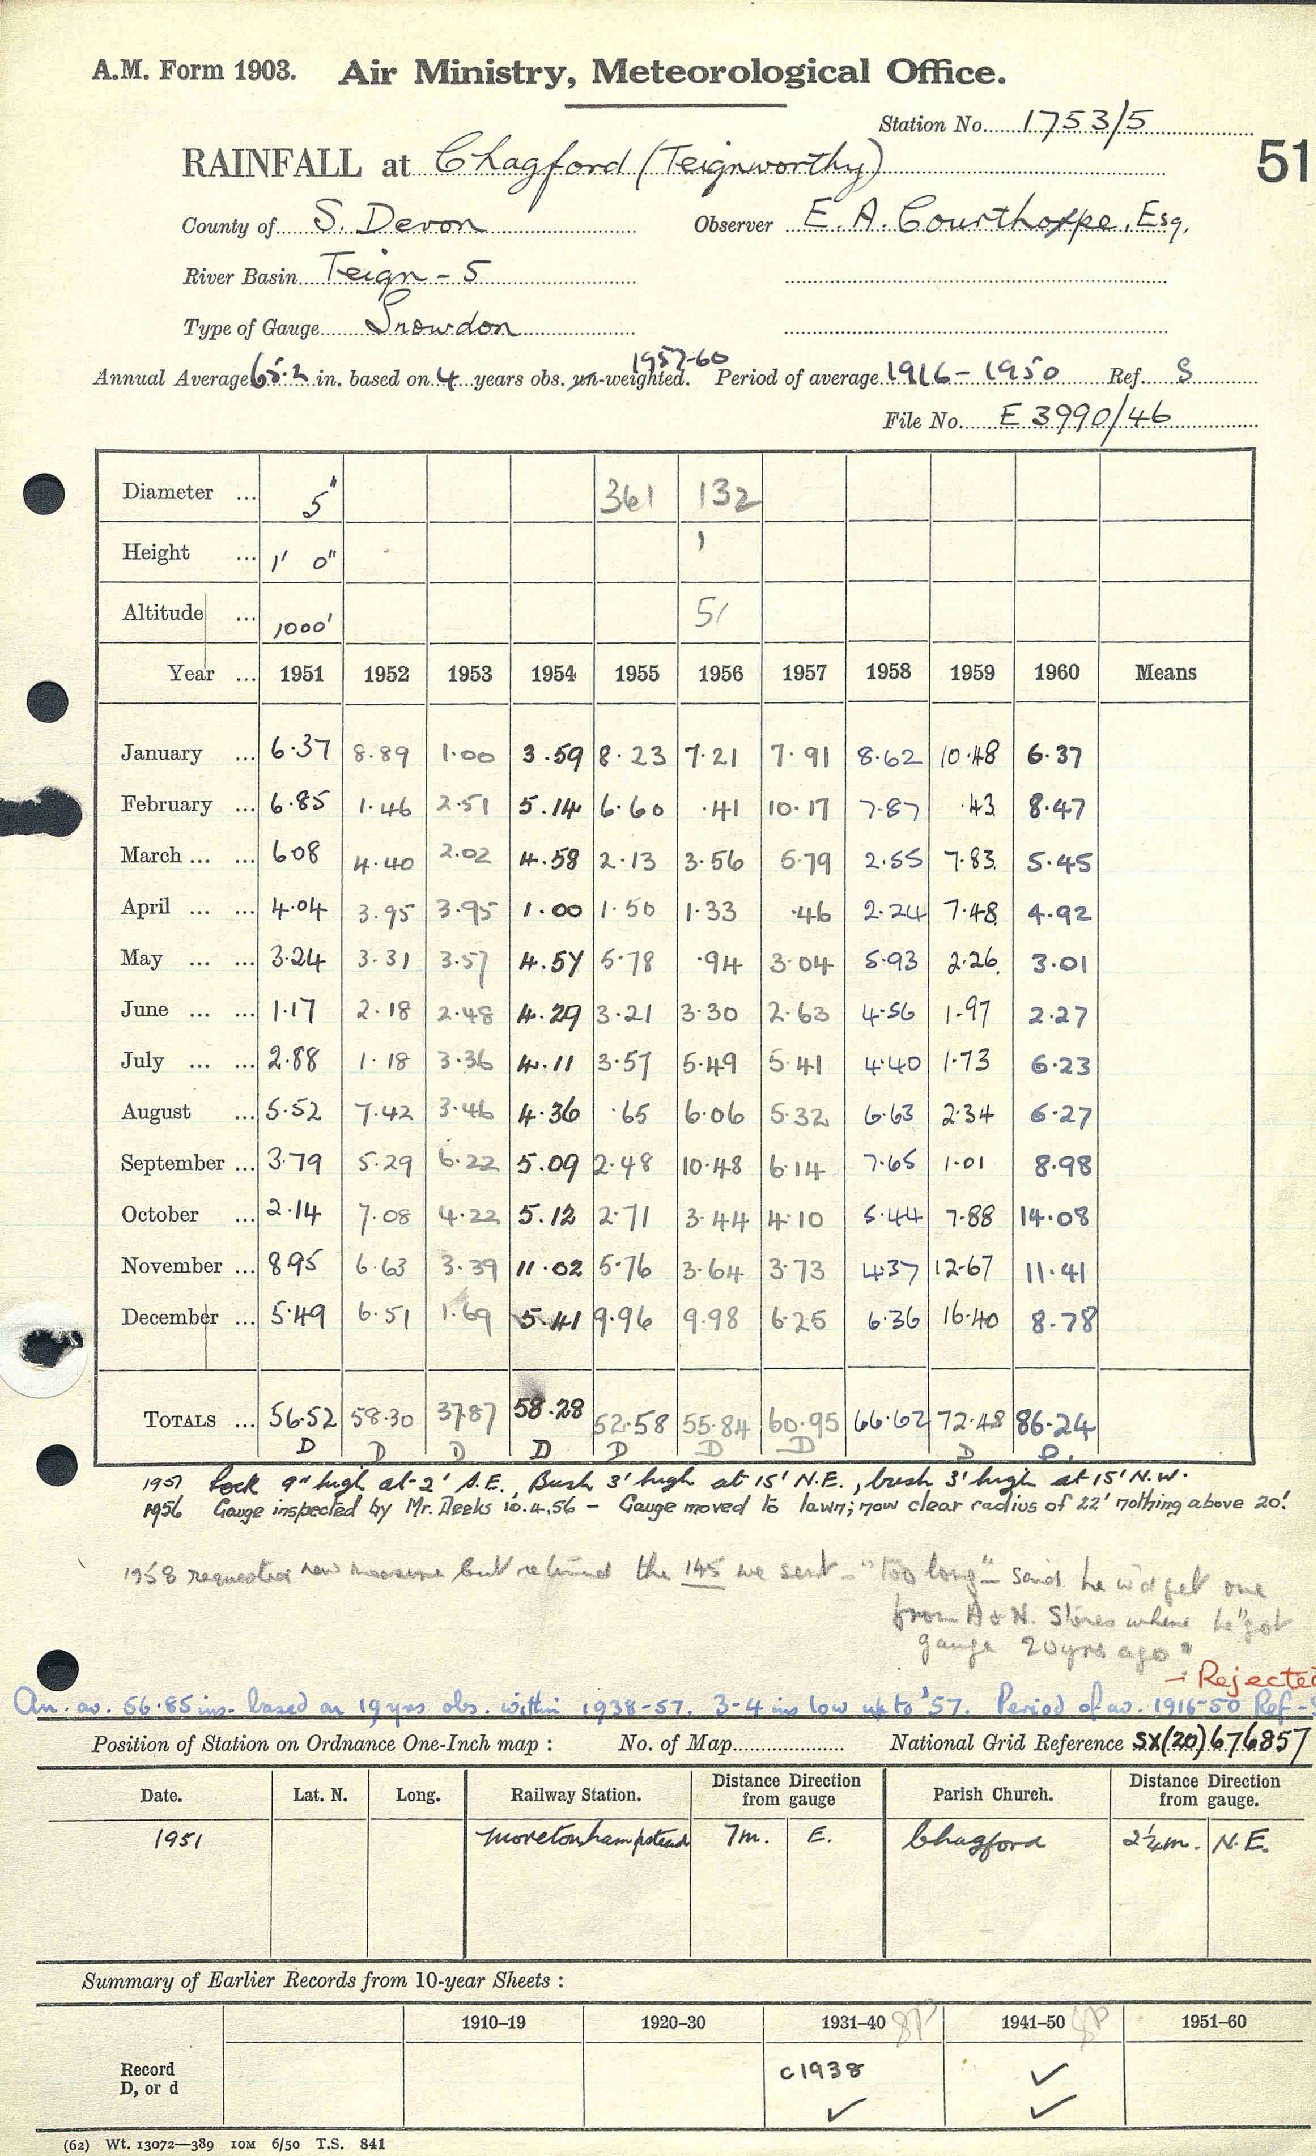 A.M. Form 1903. Air Ministry, Meteorological Office.
Station No. 1753/5
51
RAINFALL at Chagford (Teignworthy)
County of S. Devon Observer E. A. Courthope, Esq.
River Basin Teign - 5
Type of Gauge Snowdon
1957-60
Annual Average 65.2 in. based on 4 years obs. un-weighted. Period of average 1916-1950 Ref. S
File No. E 3990/46
Diameter ... 5" 361 132
Height ... 1' 0" 1
Altitude ... 1000' 51
Year ... 1951 1952 1953 1954 1955 1956 1957 1958 1959 1960 Means
January ... 6.37 8.89 1.00 3.59 8.23 7.21 7.91 8.62 10.48 6.37
February ... 6.85 1.46 2.51 5.14 6.60 .41 10.17 7.87 .43 8.47
March ... ... 608 4.40 2.02 4.58 2.13 3.56 5.79 2.55 7.83 5.45
April ... ... 4.04 3.95 3.95 1.00 1.50 1.33 .46 2.24 7.48 4.92
May ... ... 3.24 3.31 3.57 4.57 5.78 .94 3.04 5.93 2.26 3.01
June ... ... 1.17 2.18 2.48 4.29 3.21 3.30 2.63 4.56 1.97 2.27
July ... ... 2.88 1.18 3.36 4.11 3.57 5.49 5.41 4.40 1.73 6.23
August ... 5.52 7.42 3.46 4.36 .65 6.06 5.32 6.63 2.34 6.27
September ... 3.79 5.29 6.22 5.09 2.48 10.48 6.14 7.65 1.01 8.98
October ... 2.14 7.08 4.22 5.12 2.71 3.44 4.10 5.44 7.88 14.08
November ... 895 6.63 3.39 11.02 5.76 3.64 3.73 4.37 12.67 11.41
December ... 5.49 6.51 1.69 5.41 9.96 9.98 6.25 6.36 16.40 8.78
TOTALS ... 56.52 58.30 37.87 58.28 52.58 55.84 60.95 66.62 72.48 86.24
D D D D D D D D
1951 Rock 9" high at 2' S.E., Bush 3' high at 15' N.E., bush 3' high at 15' N.W.
1956 Gauge inspected by Mr. Deeks 10.4.56 - Gauge moved to lawn; now clear radius of 22' nothing above 20'.
1958 requested new measure but returned the 145 we sent - "too long" - said he wd get one
from A & N. Stores where he "got
gauge 20 yrs ago"
- Rejected
An. av. 56.85 ins. based on 19 yrs obs. within 1938-57. 3-4 ins low up to '57. Period of av. 1916-50 Ref - S
Position of Station on Ordnance One-Inch map : No. of Map National Grid Reference SX(20)676857
Date. Lat. N. Long. Railway Station. Distance from gauge Direction Parish Church. Distance from gauge. Direction
1951 Moretonhampstead 7m. E. Chagford 2¼m. N.E.
Summary of Earlier Records from 10-year Sheets :
1910-19 1920-30 1931-40 1941-50 1951-60
Record c1938 ✓
D, or d ✓ ✓
(62) Wt. 13072—389 10M 6/50 T.S. 841